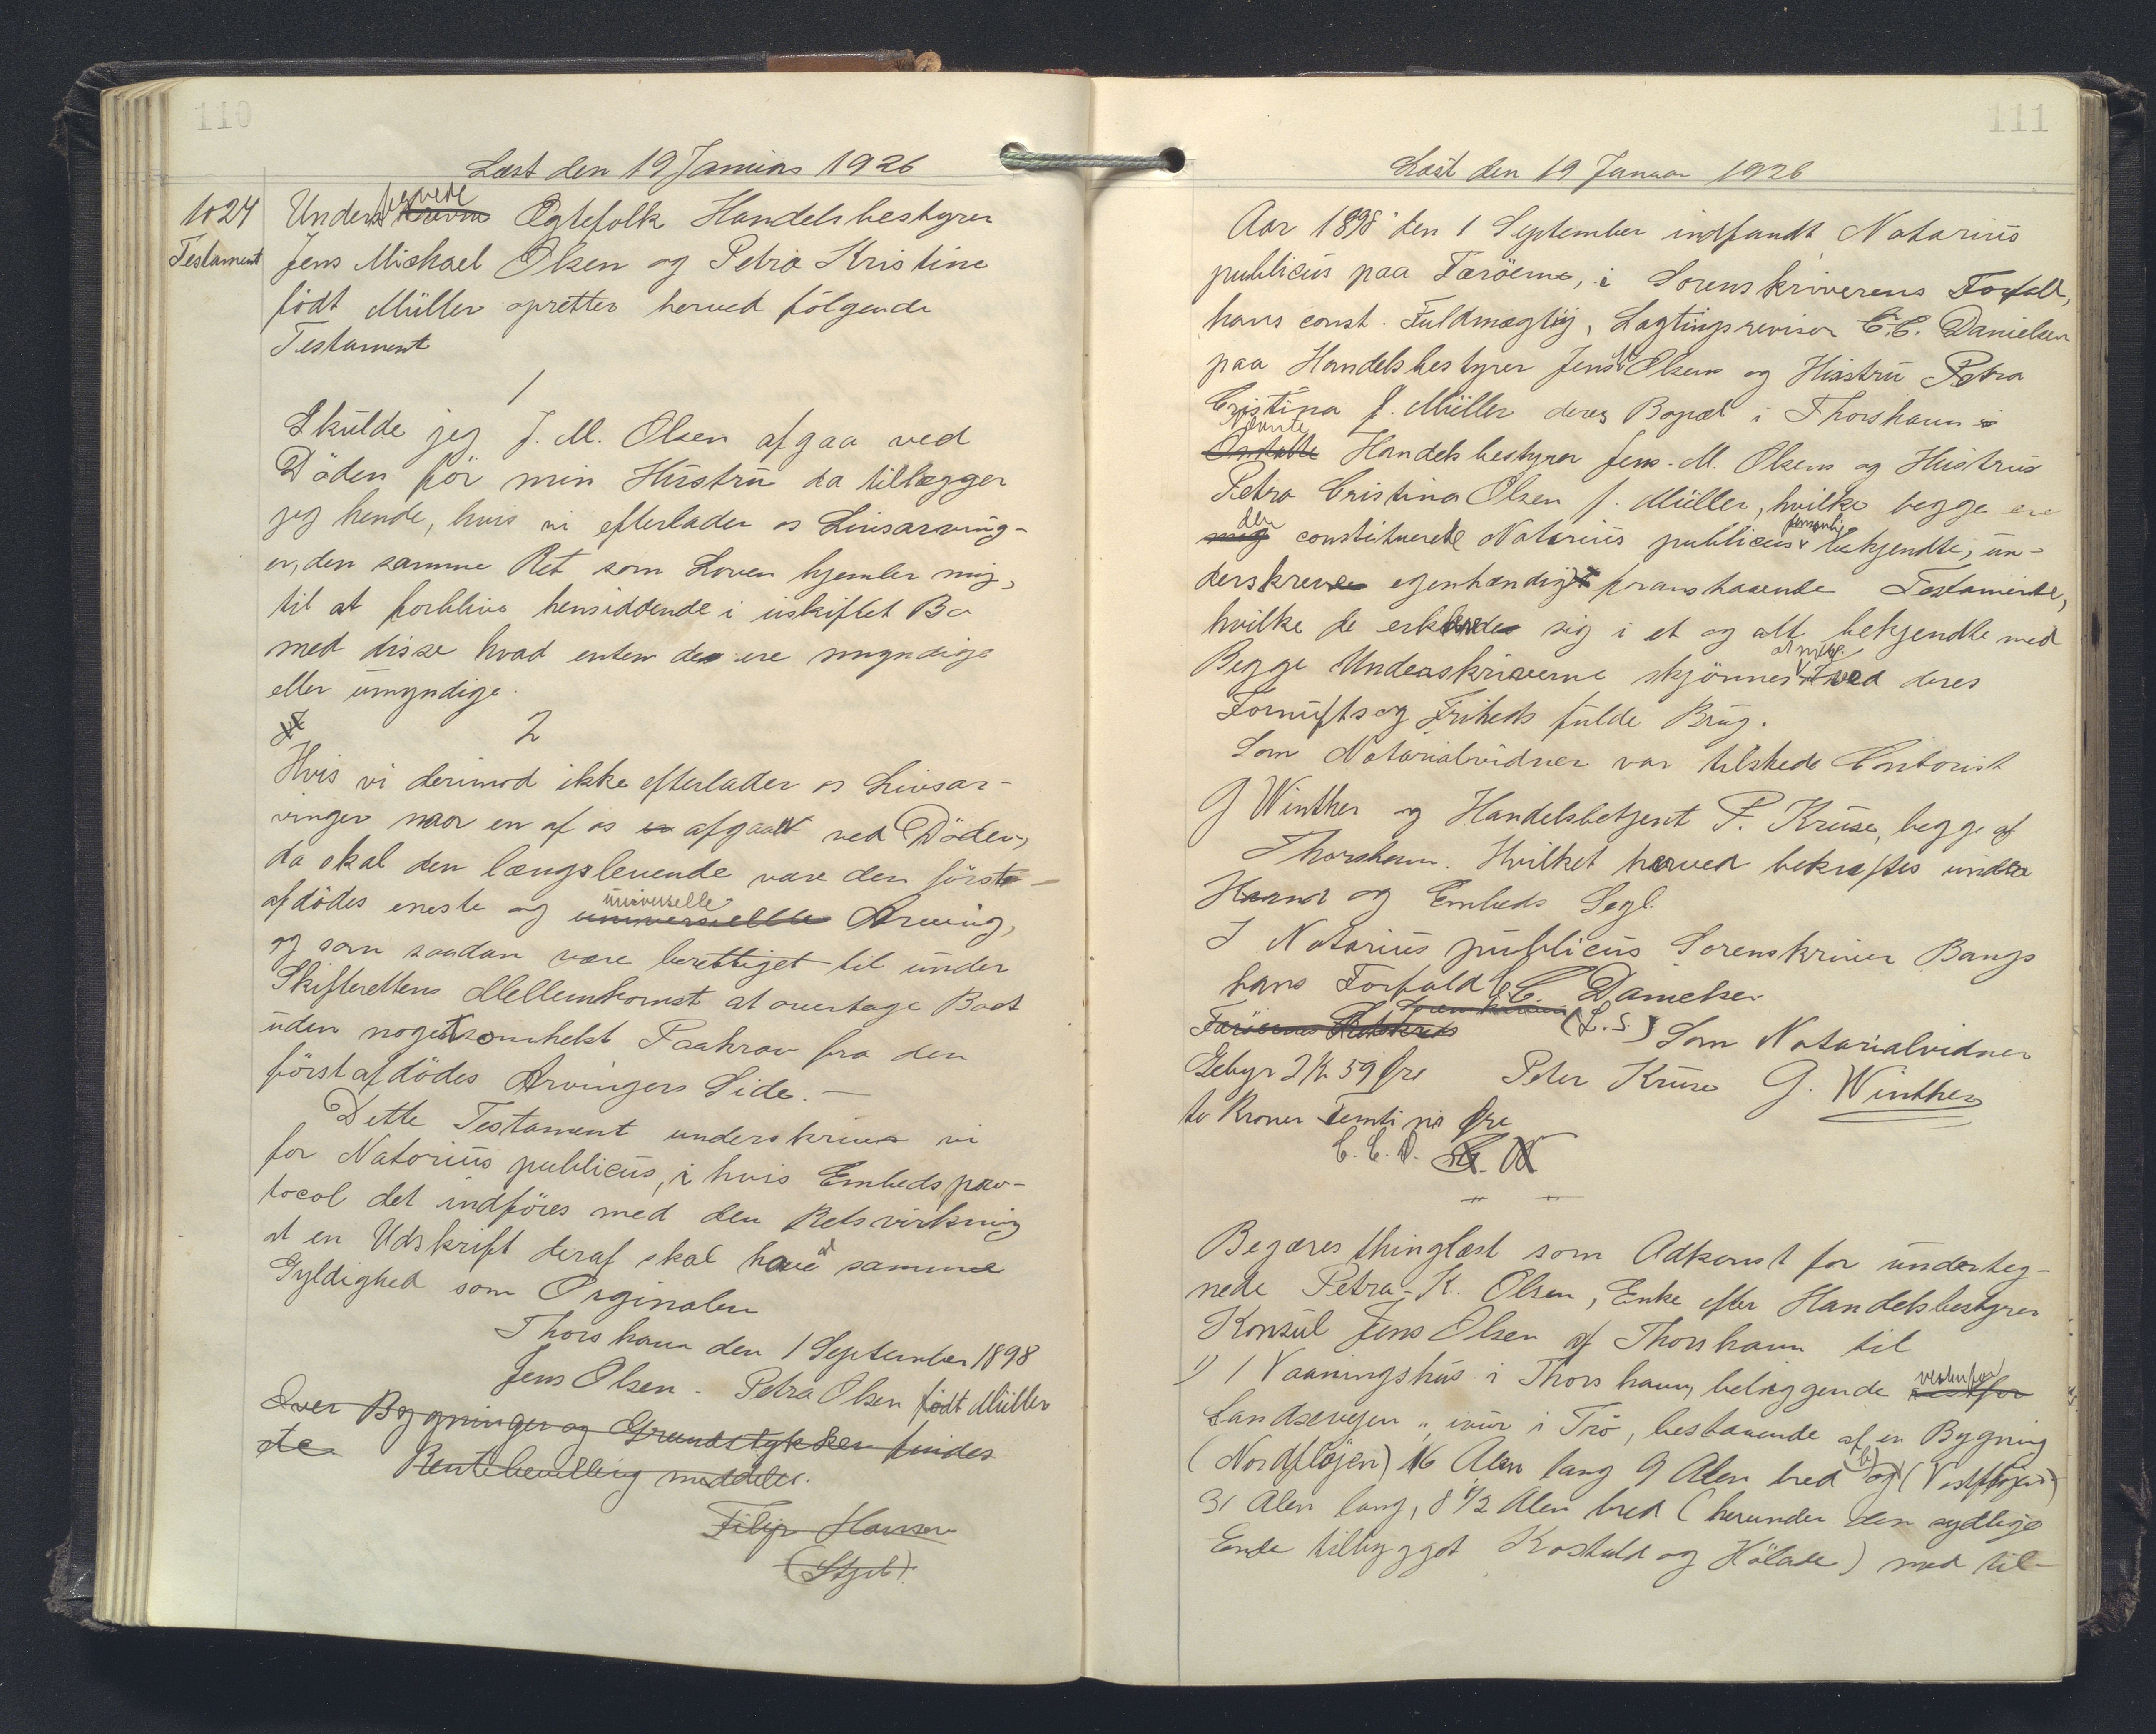 110
Læst den 19 Januar 1926
1024
Testament
Undertegnede Ægtefolk Handelsbestyrer
Jens Michael Olsen og Petra Kristine
født Müller opretter herved følgende
Testament
1
Skulde jeg J. M. Olsen afgaa ved
Döden för min Hustru da tillægger
jeg hende, hvis vi efterlader os Livsarving-
er, den samme Ret som Loven hjemler mig,
til at forblive hensiddende i uskiftet Bo
med disse hvad enten de ere myndige
eller umyndige.
2
Hvis vi derimod ikke efterlader os Livsar-
vinger naar en af os er afgaaet ved Döden,
da skal den længslevende være den först-
afdödes eneste og universelle Arving,
og som saadan være berettiget til under
Skifterettens Mellemkomst at overtage Boet
uden nogetsomhelst Paakrav fra den
först afdödes Arvingers Side. -
Dette Testament underskriver vi
for Notarius publicus, i hvis Embedspro-
tocol det indföres med den Retsvirkning
at en Udskrift deraf skal have samme
Gyldighed som Orginalen
Thorshavn den 1 September 1898
Jens Olsen - Petra Olsen født Müller
Over Bygninger og Grundstykker findes
etc. Rentebevilling meddeles.
Filip Hansen
(Stpl)
111
Læst den 19 Januar 1926
Aar 1898 den 1 September indfandt Notarius
publicus paa Færöerne, i Sorenskriverens Forfald,
hans const. Fuldmægtig, Lagtingsrevisor C.C. Danielsen
paa Handelsbestyrer Jens M Olsens og Hustru Petra
Cristina f. Müller deres Bopæl i Thorshavn
Nævnte Handelsbestyrer Jens. M. Olsen og Hustru
Petra Cristina Olsen f. Müller, hvilke begge ere
den constituerede Notarius publicus personlig bekjendte, un-
derskrev egenhændigt foranstaaende Testamente,
hvilke de erklærede sig i et og alt bekjendte med
Begge Underskriverne skjönnes at være ved deres
Fornufts og Friheds fulde Brug.
Som Notarialvidner var tilstede Contorist
G Winther og Handelsbetjent P. Kruse, begge af
Thorshavn. Hvilket herved bekræftes under
Haand og Embeds Segl.
I Notarius publicus Sorenskriver Bangs
hans Forfald C.C. Danielsen
Færöernes Retskreds Sorenskriveri (L. S.) Som Notarialvidner
Gebyr 2 Kr 59 Øre Peter Kruse G. Winther
to Kroner femti ni Øre
C. C. D.
Begæres thinglæst som Adkomst for underteg-
nede Petra K. Olsen, Enke efter Handelsbestyrer
Konsul Jens Olsen af Thorshavn til
1) 1 Vaaningshus i Thorshavn, beliggende vestenfor
Landevejen "inur i Trö, bestaaende af en Bygning
(Nordflöjen) 16 Alen lang 9 Alen bred og b) (Vestflöjen)
31 Alen lang, 8 1/2 Alen bred (herunder den sydlige
Ende tilbygget Kostald og Hölade) med til-